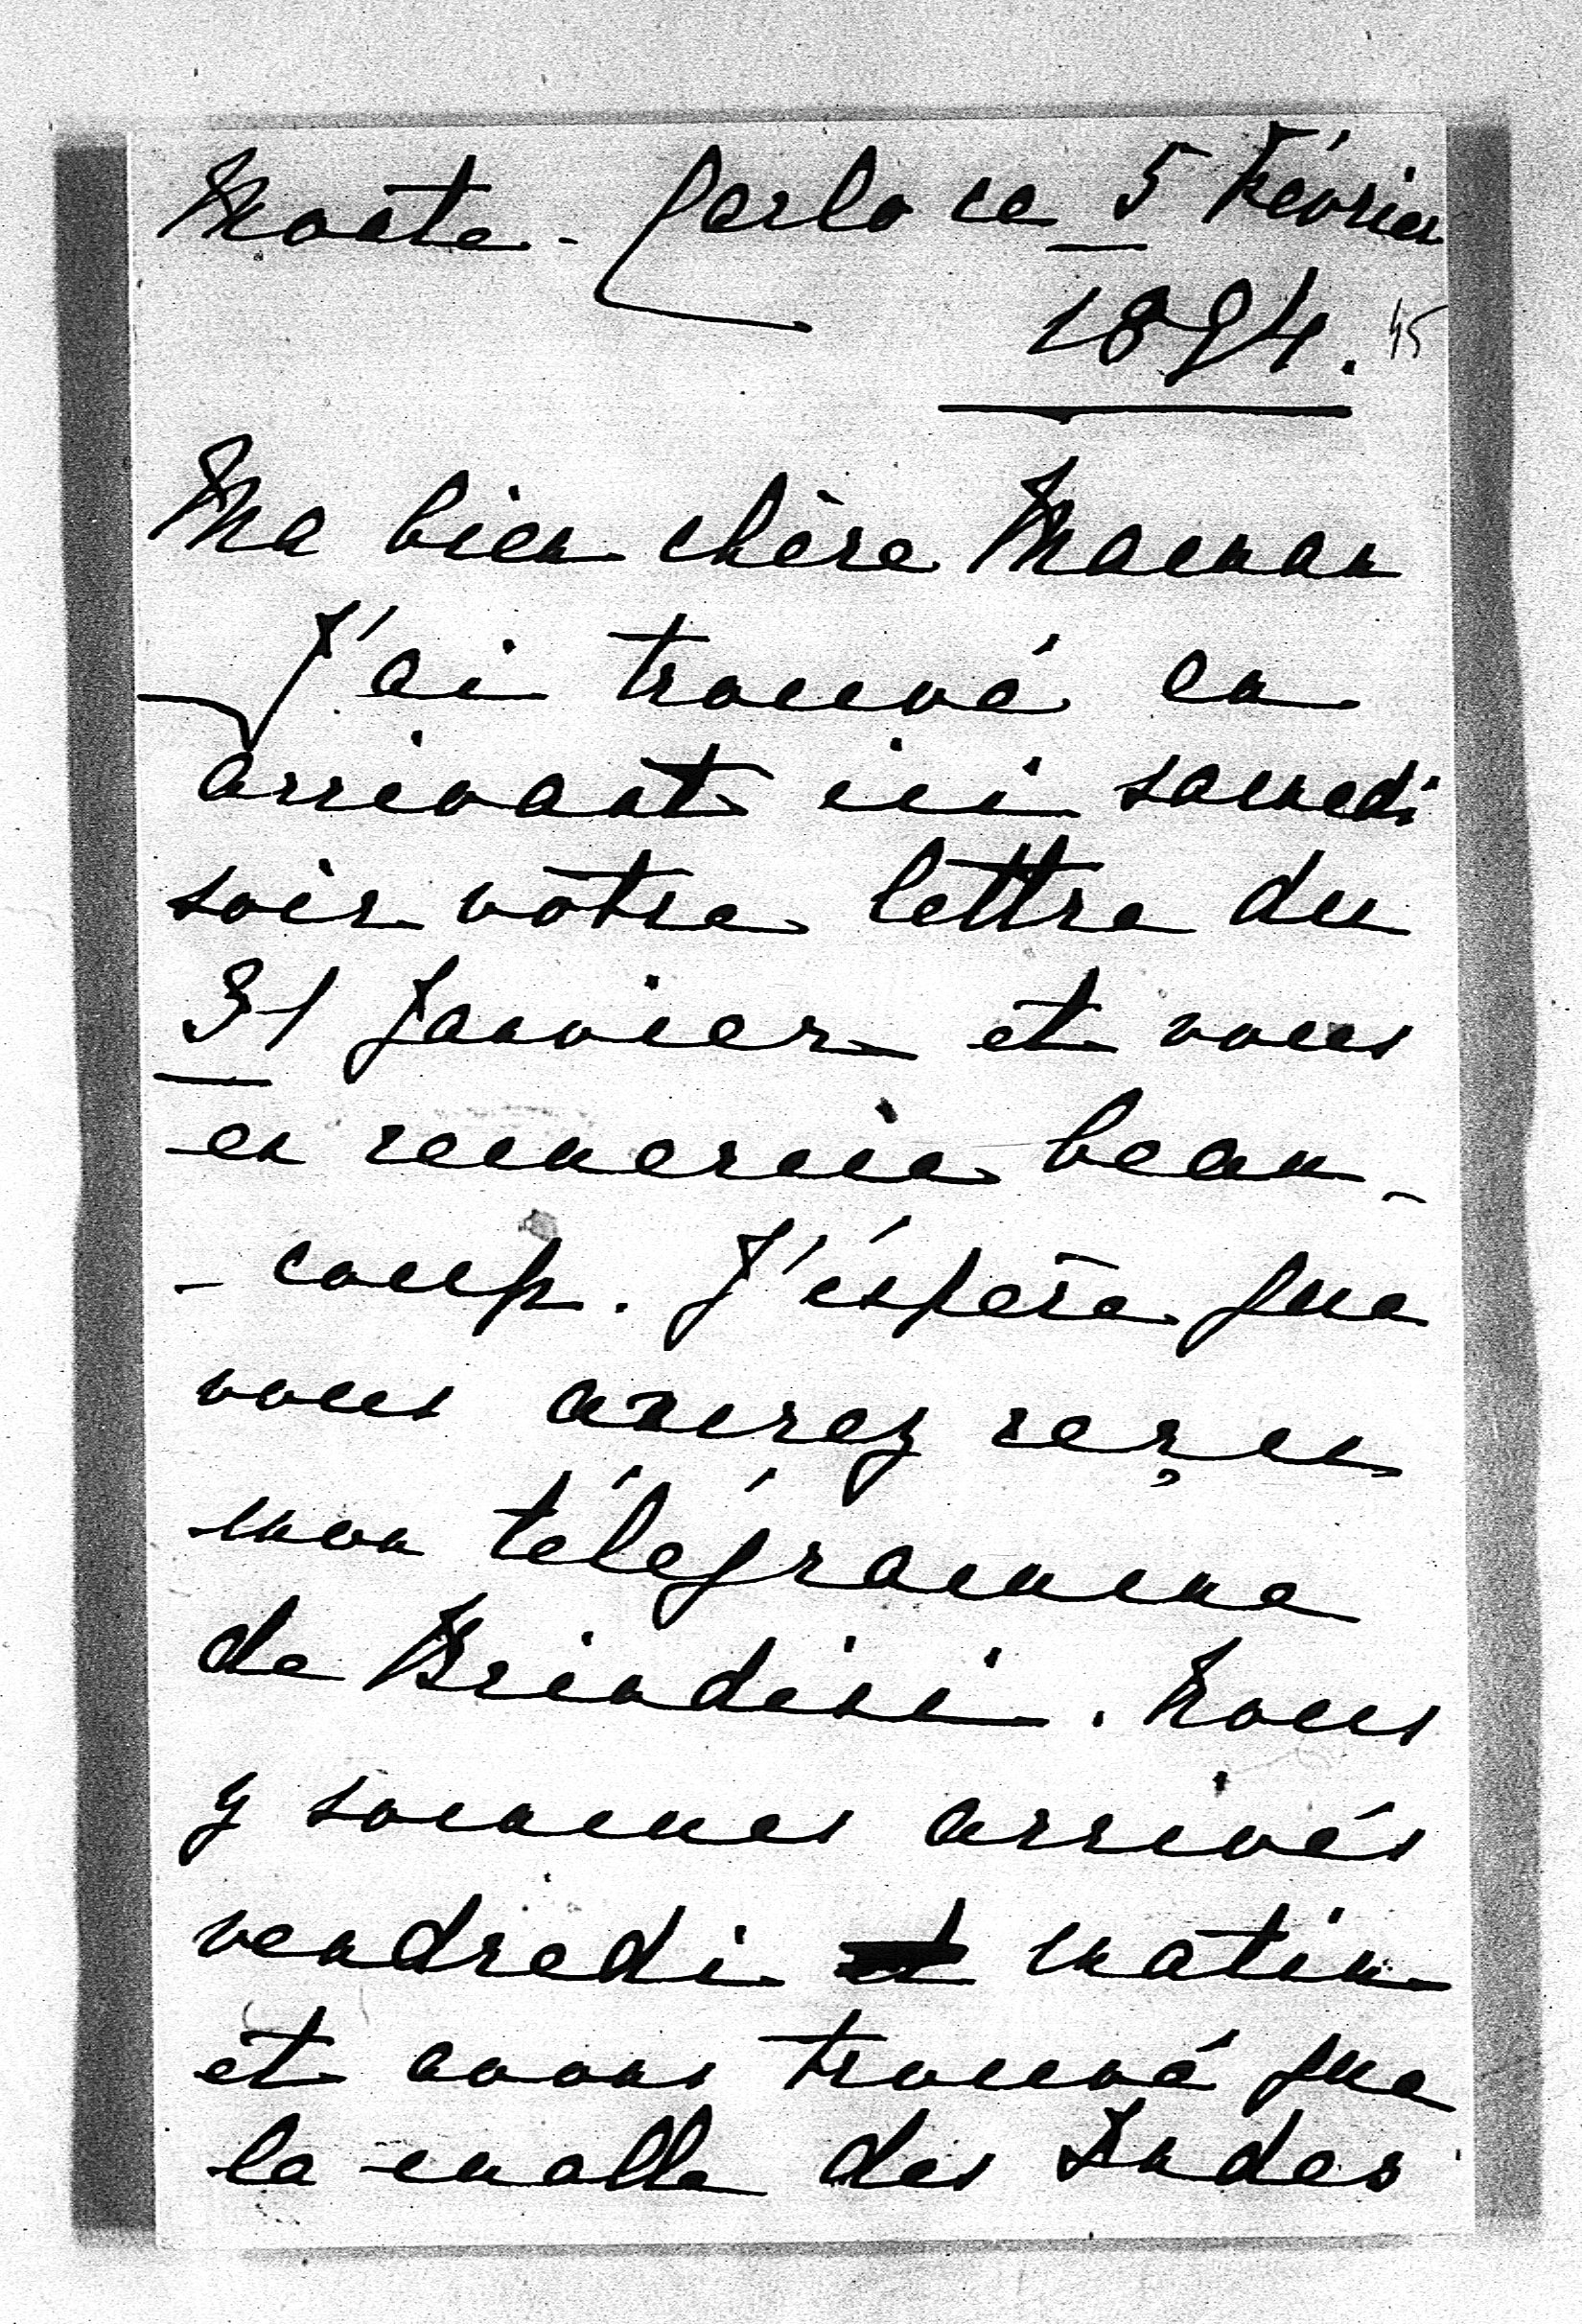 Monte-Carlo ce 5 Février
1894. 45
Ma bien chère Maman
J'ai trouvé en
arrivant ici samedi
soir votre lettre du
31 Janvier et vous
en remercie beau-
-coup. J'éspère que
vous aurez reçu
mon télégramme
de Brindisi. Nous
y sommes arrivés
vendredi et matin
et avons trouvé que
la malle des Indes